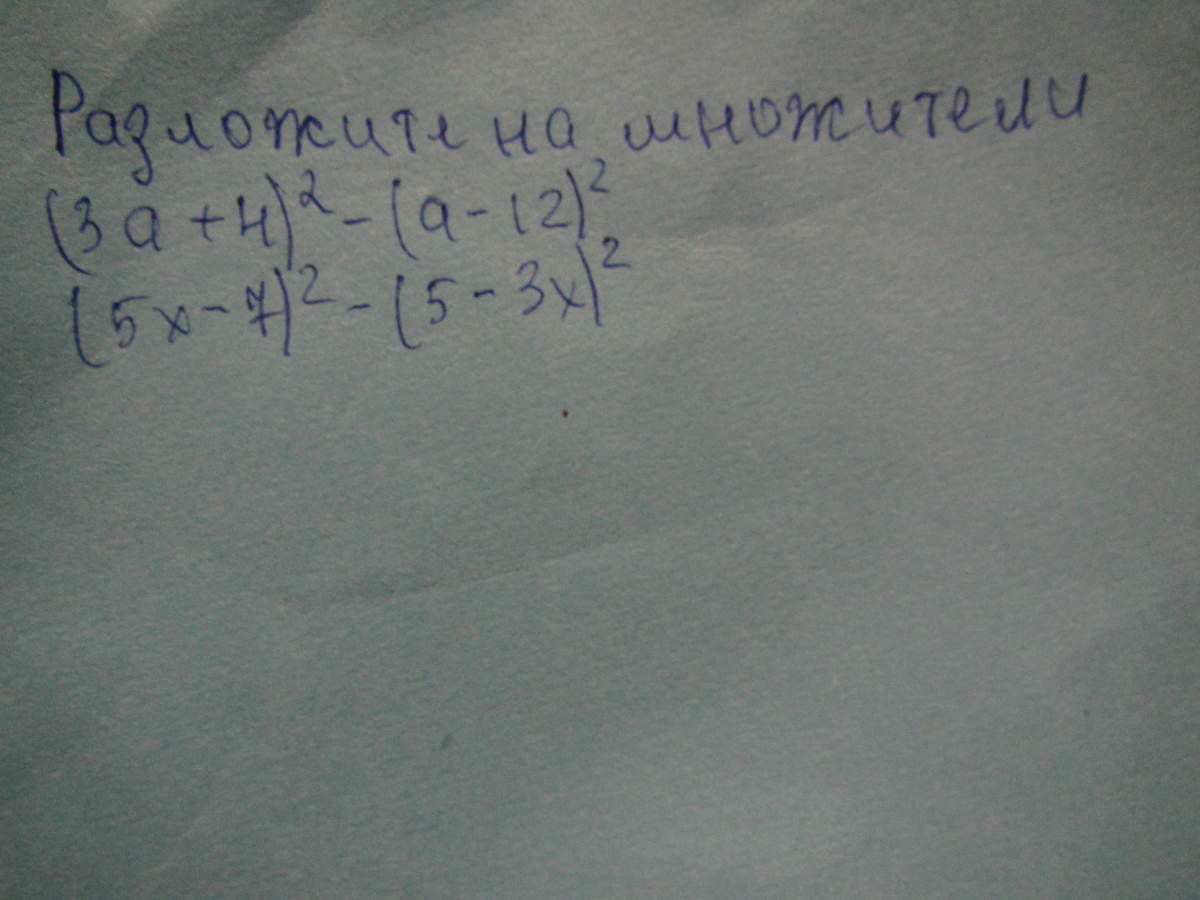 Разложите на множители
(3a+4)² - (a-12)²
(5x-7)² - (5-3x)²